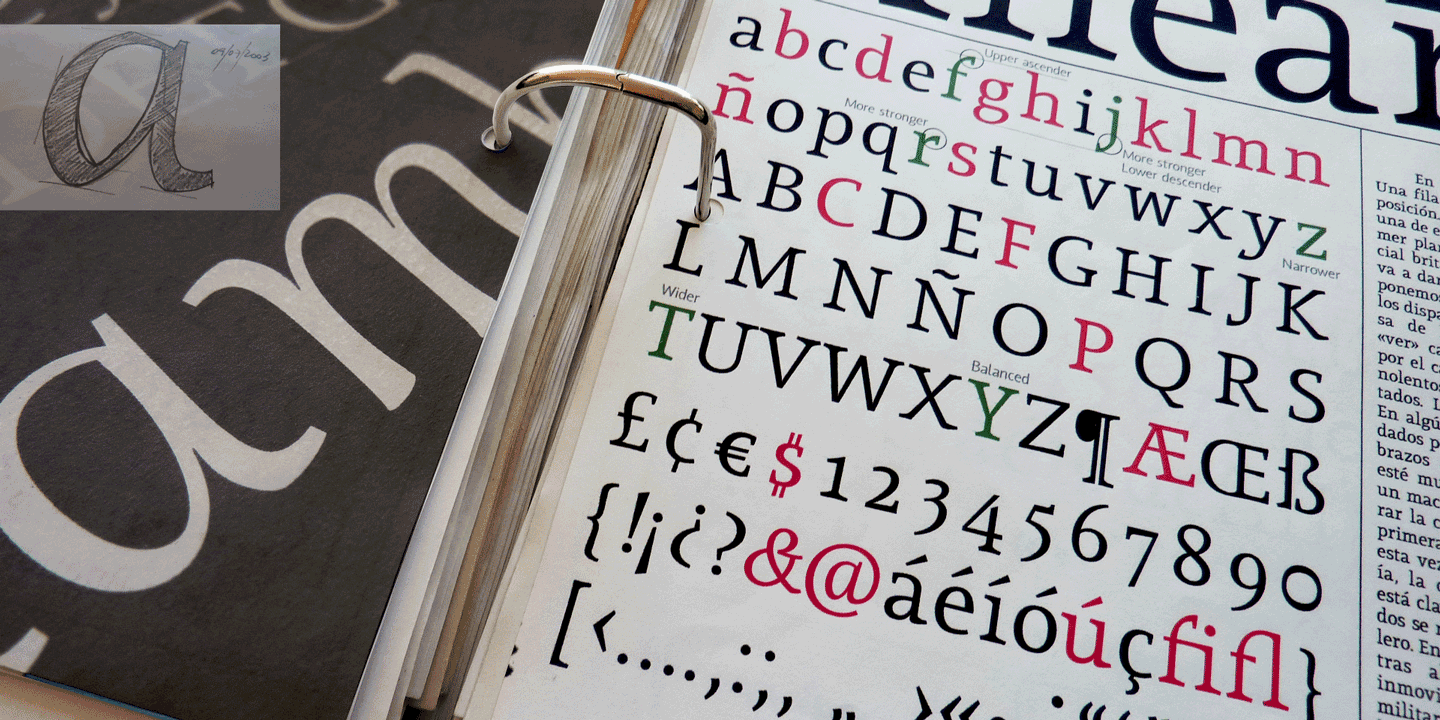 a
09/07/2003
am
abcdefghijklmn
Upper ascender
ñopqrstuvwxyz
More stronger
More stronger
Lower descender
Narrower
ABCDEFGHIJK
LMNÑOPQRS
Wider
TUVWXYZ¶ÆŒß
Balanced
£¢€$1234567890
{!¡¿?&@áéíóúçfifl}
[‹....,:;,
En
Una fila
posición.
una de e
mer plan
cial brit
va a dar
ponemos
los dispa
sa de
«ver» ca
por el c
nolentos
tados. L
En algú
dados p
brazos
esté mu
un mac
rar la c
primera
esta vez
ía, la
está cla
dos se
lero. En
tras a
inmovi
milita